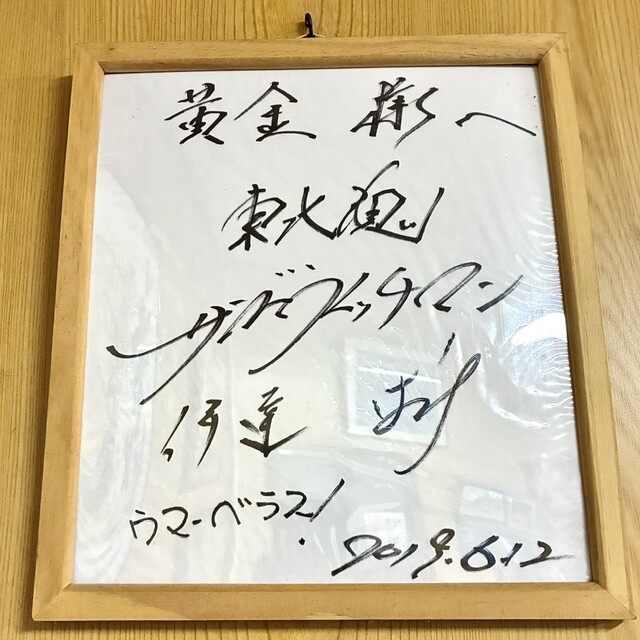 黄金 様へ
東北魂!
サンドウィッチマン
伊達
ウマーベラス!
2019.6.12